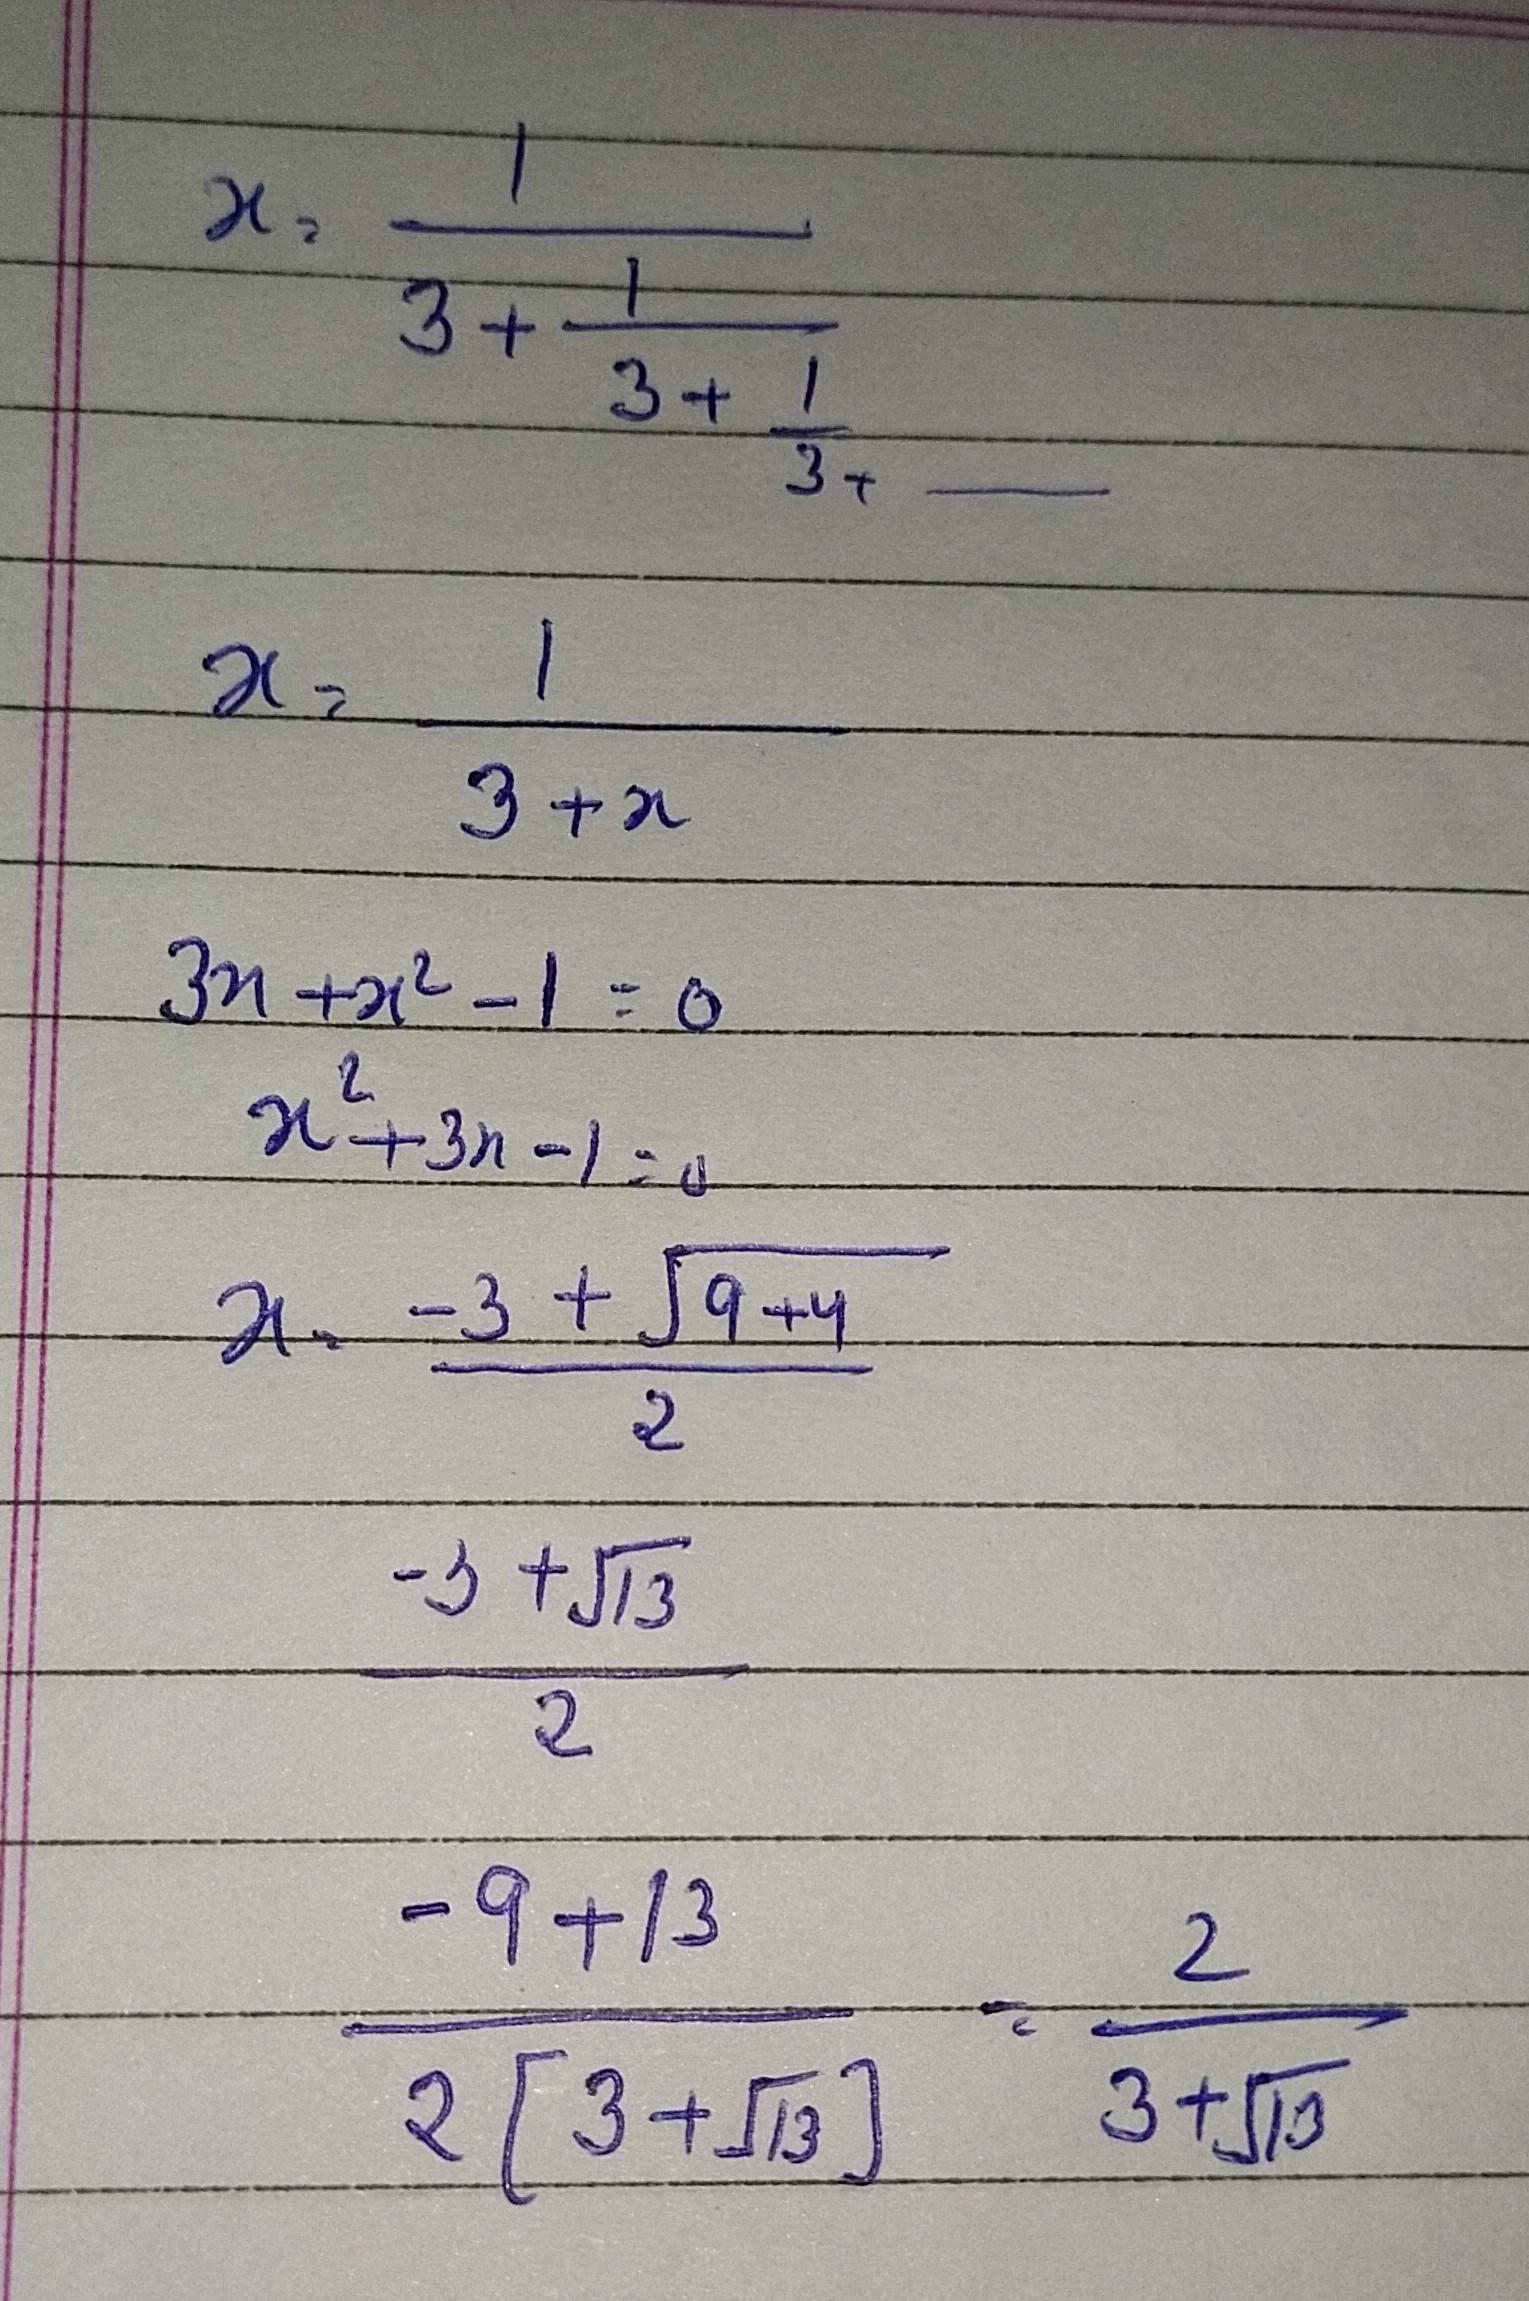 x = 1
3 + 1
3 + 1
3 + —
x = 1
3 + x
3x + x² - 1 = 0
x² + 3x - 1 = 0
x = -3 + √9+4
2
-3 + √13
2
-9 + 13 = 2
2[3 + √13] 3 + √13